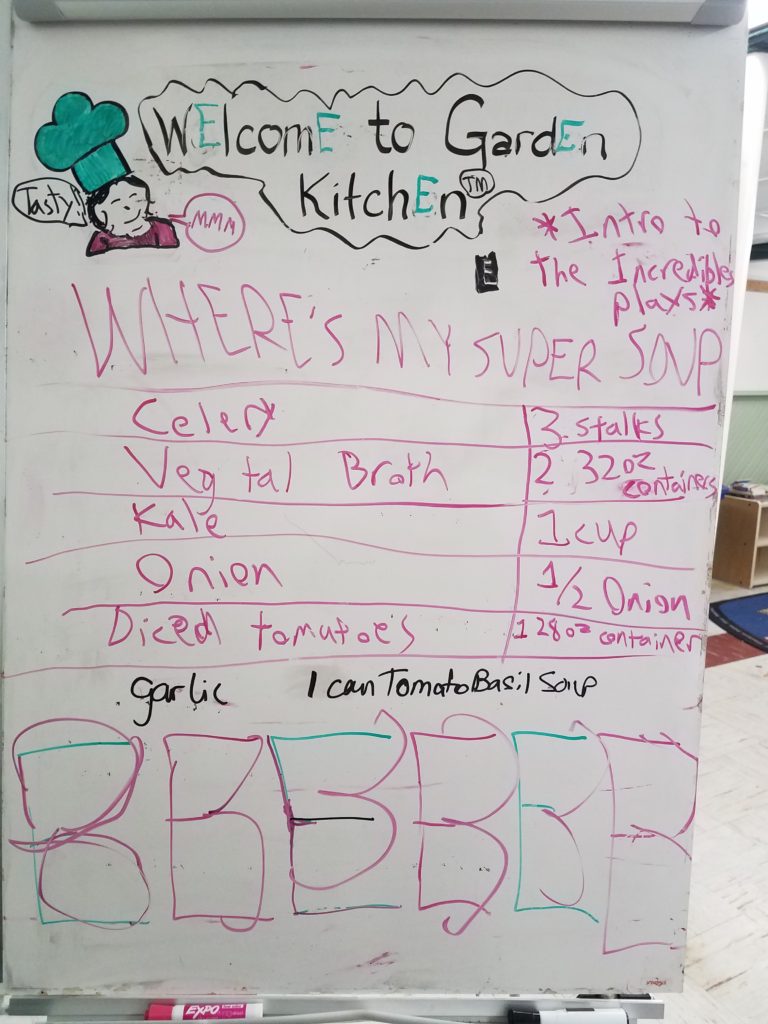 WElcomE to GardEn
KitchEn TM
Tasty!
MMM
*Intro to
the Incredibles
plays*
E
WHERE'S MY SUPER SOUP
Celery 3 stalks
Vegtal Broth 2 32oz containers
Kale 1 cup
Onion 1/2 Onion
Diced tomatoe's 1 28oz container
garlic 1 can Tomato Basil Soup
EXPO